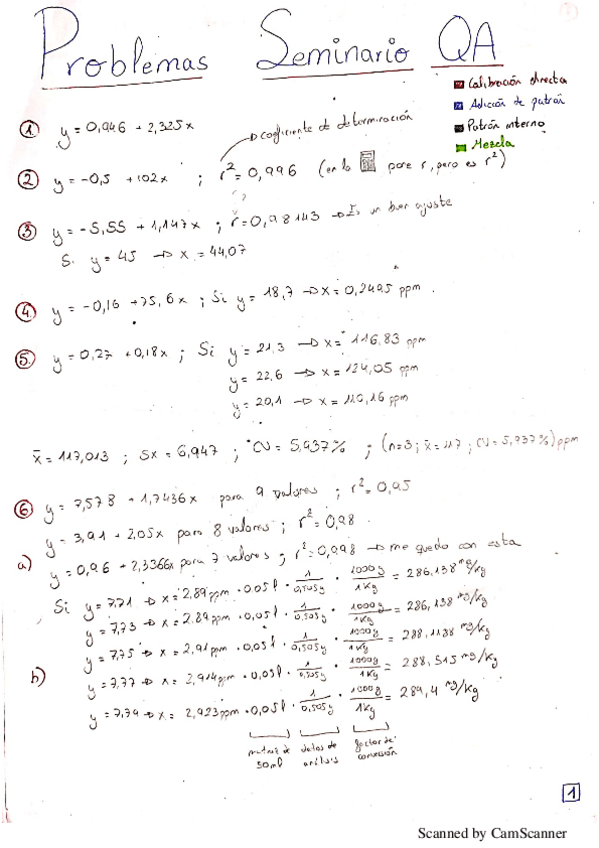 Problemas Seminario QA
Calibración directa
Adición de patrón
Patrón interno
Mezcla
① y = 0,946 + 2,325x
→ coeficiente de determinación
② y = -0,5 + 102x ; r² = 0,996 (en la pone r, pero es r²)
③ y = -5,55 + 1,147x ; r = 0,98143 → Es un buen ajuste
Si y = 45 → x = 44,07
④ y = -0,16 + 75,6x ; Si y = 18,7 → x = 0,2495 ppm.
⑤ y = 0,27 + 0,18x ; Si y = 21,3 → x = 116,83 ppm
y = 22,6 → x = 124,05 ppm
y = 20,1 → x = 110,16 ppm
x̄ = 117,013 ; Sx = 6,947 ; CV = 5,937% ; (n=3 ; x̄ = 117 ; CV = 5,937%) ppm
⑥ y = 7,578 + 1,7436x para 9 valores ; r² = 0,95
y = 3,91 + 2,05x para 8 valores ; r² = 0,98.
a) y = 0,96 + 2,3366x para 7 valores ; r² = 0,998 → me quedo con esta
Si y = 7,71 → x = 2,89 ppm · 0,05 l · 1/0,505g · 1000g/1Kg = 286,138 mg/Kg
y = 7,73 → x = 2,89 ppm · 0,05 l · 1/0,505g · 1000g/1Kg = 286,138 mg/Kg
y = 7,75 → x = 2,91 ppm · 0,05 l · 1/0,505g · 1000g/1Kg = 288,1188 mg/Kg
b) y = 7,77 → x = 2,914 ppm · 0,05 l · 1/0,505g · 1000g/1Kg = 288,515 mg/Kg
y = 7,79 → x = 2,923 ppm · 0,05 l · 1/0,505g · 1000g/1Kg = 289,4 mg/Kg
matraz de 50 ml
datos de análisis
factor de conversión
1
Scanned by CamScanner